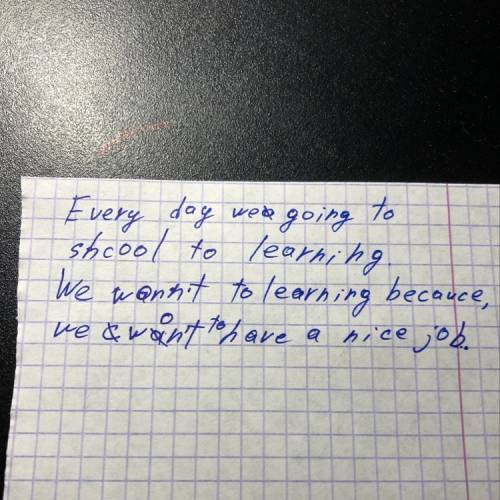 Every day we going to
shcool to learning.
We wonnt to learning becauce,
we wont to have a nice job.